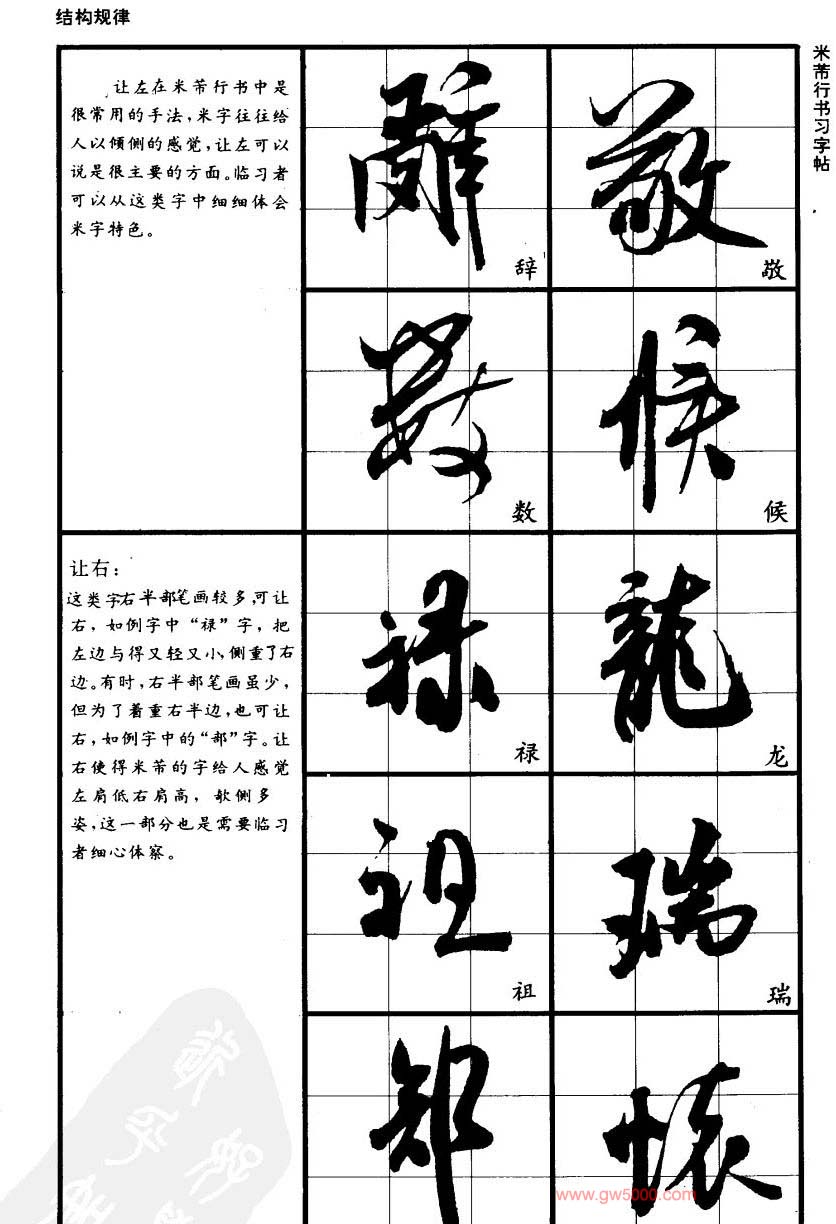 结构规律
米芾行书习字帖
让左在米芾行书中是
很常用的手法,米字往往给
人以倾侧的感觉,让左可以
说是很主要的方面。临习者
可以从这类字中细细体会
米字特色。
辞
敬
数
候
让右:
这类字右半部笔画较多,可让
右,如例字中“禄”字,把
左边与得又轻又小,侧重了右
边。有时,右半部笔画虽少,
但为了着重右半边,也可让
右,如例字中的“郝”字。让
右使得米芾的字给人感觉
左肩低右肩高,欹侧多
姿,这一部分也是需要临习
者细心体察。
禄
龙
祖
瑞
www.gw5000.com